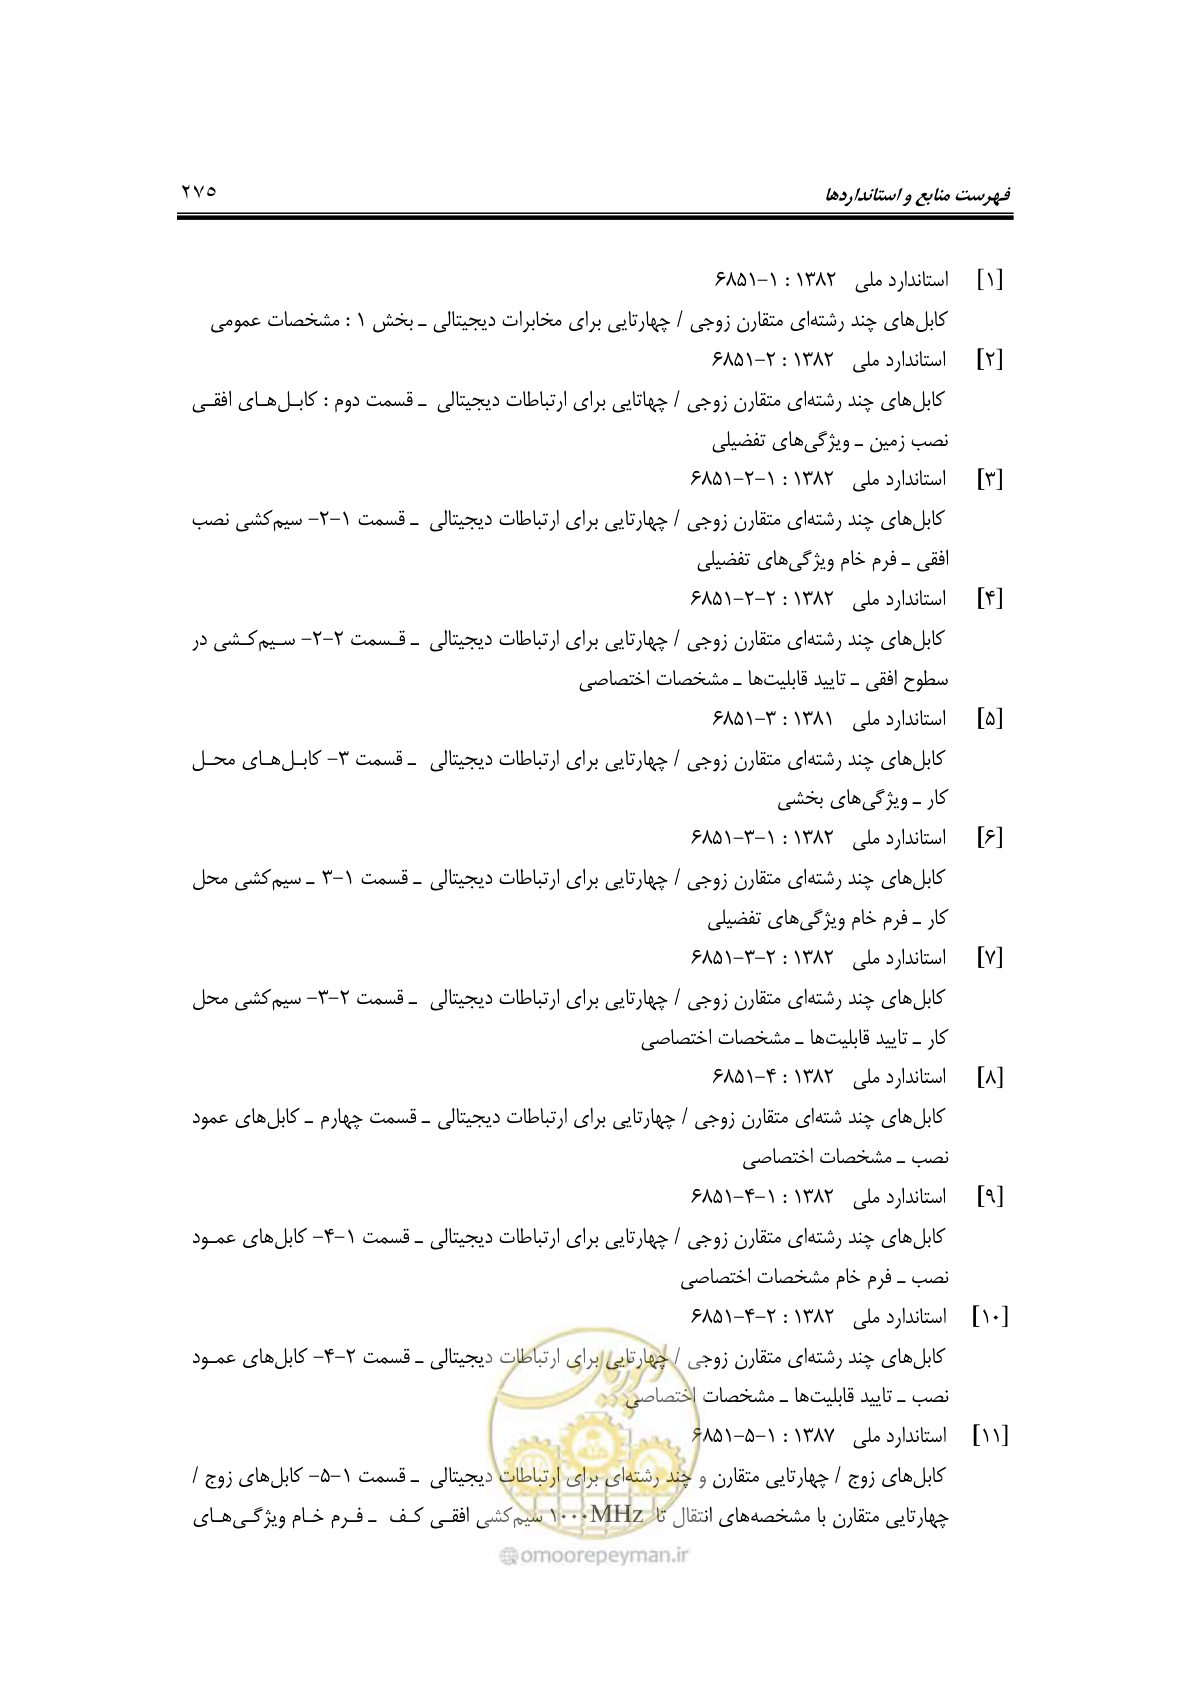 فهرست منابع و استانداردها ۲۷۵
[۱] استاندارد ملی ۱۳۸۲ : ۱-۶۸۵۱
کابل‌های چند رشته‌ای متقارن زوجی / چهارتایی برای مخابرات دیجیتالی ـ بخش ۱ : مشخصات عمومی
[۲] استاندارد ملی ۱۳۸۲ : ۲-۶۸۵۱
کابل‌های چند رشته‌ای متقارن زوجی / چهاتایی برای ارتباطات دیجیتالی ـ قسمت دوم : کابـل‌هـای افقـی
نصب زمین ـ ویژگی‌های تفضیلی
[۳] استاندارد ملی ۱۳۸۲ : ۱-۲-۶۸۵۱
کابل‌های چند رشته‌ای متقارن زوجی / چهارتایی برای ارتباطات دیجیتالی ـ قسمت ۱-۲- سیم‌کشی نصب
افقی ـ فرم خام ویژگی‌های تفضیلی
[۴] استاندارد ملی ۱۳۸۲ : ۲-۲-۶۸۵۱
کابل‌های چند رشته‌ای متقارن زوجی / چهارتایی برای ارتباطات دیجیتالی ـ قـسمت ۲-۲- سـیم‌کـشی در
سطوح افقی ـ تایید قابلیت‌ها ـ مشخصات اختصاصی
[۵] استاندارد ملی ۱۳۸۱ : ۳-۶۸۵۱
کابل‌های چند رشته‌ای متقارن زوجی / چهارتایی برای ارتباطات دیجیتالی ـ قسمت ۳- کابـل‌هـای محـل
کار ـ ویژگی‌های بخشی
[۶] استاندارد ملی ۱۳۸۲ : ۱-۳-۶۸۵۱
کابل‌های چند رشته‌ای متقارن زوجی / چهارتایی برای ارتباطات دیجیتالی ـ قسمت ۱-۳ ـ سیم‌کشی محل
کار ـ فرم خام ویژگی‌های تفضیلی
[۷] استاندارد ملی ۱۳۸۲ : ۲-۳-۶۸۵۱
کابل‌های چند رشته‌ای متقارن زوجی / چهارتایی برای ارتباطات دیجیتالی ـ قسمت ۲-۳- سیم‌کشی محل
کار ـ تایید قابلیت‌ها ـ مشخصات اختصاصی
[۸] استاندارد ملی ۱۳۸۲ : ۴-۶۸۵۱
کابل‌های چند شته‌ای متقارن زوجی / چهارتایی برای ارتباطات دیجیتالی ـ قسمت چهارم ـ کابل‌های عمود
نصب ـ مشخصات اختصاصی
[۹] استاندارد ملی ۱۳۸۲ : ۱-۴-۶۸۵۱
کابل‌های چند رشته‌ای متقارن زوجی / چهارتایی برای ارتباطات دیجیتالی ـ قسمت ۱-۴- کابل‌های عمـود
نصب ـ فرم خام مشخصات اختصاصی
[۱۰] استاندارد ملی ۱۳۸۲ : ۲-۴-۶۸۵۱
کابل‌های چند رشته‌ای متقارن زوجی / چهارتایی برای ارتباطات دیجیتالی ـ قسمت ۲-۴- کابل‌های عمـود
نصب ـ تایید قابلیت‌ها ـ مشخصات اختصاصی
[۱۱] استاندارد ملی ۱۳۸۷ : ۱-۵-۶۸۵۱
کابل‌های زوج / چهارتایی متقارن و چند رشته‌ای برای ارتباطات دیجیتالی ـ قسمت ۱-۵- کابل‌های زوج /
چهارتایی متقارن با مشخصه‌های انتقال تا ۱۰۰۰MHz سیم‌کشی افقـی کـف ـ فـرم خـام ویژگـی‌هـای
امور پیمان
@omoorepeyman.ir